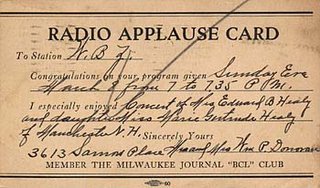 RADIO APPLAUSE CARD
To Station W.B.Z.
Congratulations on your program given Sunday Eve
March 9 from 7 to 735 P.M.
I especially enjoyed Concert of Mrs Edward B Healy
and daughter Miss Marie Gertrude Healy
of Manchester N.H. Sincerely Yours
3613 Place Mr and Mrs Wm P. Donovan
MEMBER THE MILWAUKEE JOURNAL "BCL" CLUB
60